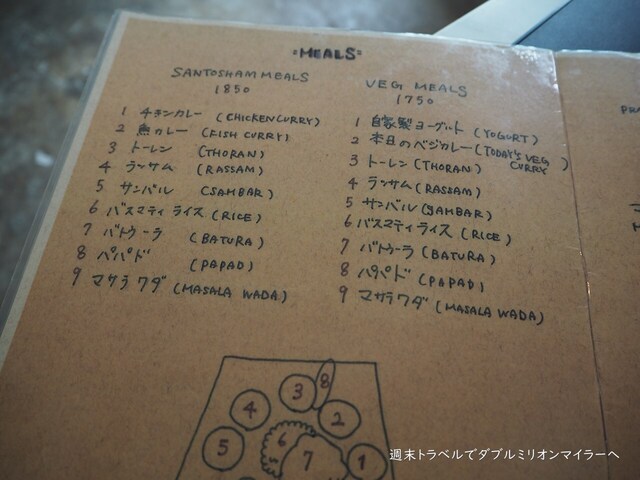 MEALS
SANTOSHAM MEALS
1850
1 チキンカレー (CHICKEN CURRY)
2 魚カレー (FISH CURRY)
3 トーレン (THORAN)
4 ラッサム (RASSAM)
5 サンバル (SAMBAR)
6 バスマティ ライス (RICE)
7 バトゥーラ (BATURA)
8 パパド (PAPAD)
9 マサラワダ (MASALA WADA)
VEG MEALS
1750
1 自家製ヨーグルト (YOGURT)
2 本日のベジカレー (TODAY'S VEG CURRY)
3 トーレン (THORAN)
4 ラッサム (RASSAM)
5 サンバル (SAMBAR)
6 バスマティ ライス (RICE)
7 バトゥーラ (BATURA)
8 パパド (PAPAD)
9 マサラワダ (MASALA WADA)
8
3
4
2
5
6
7
1
週末トラベルでダブルミリオンマイラーへ